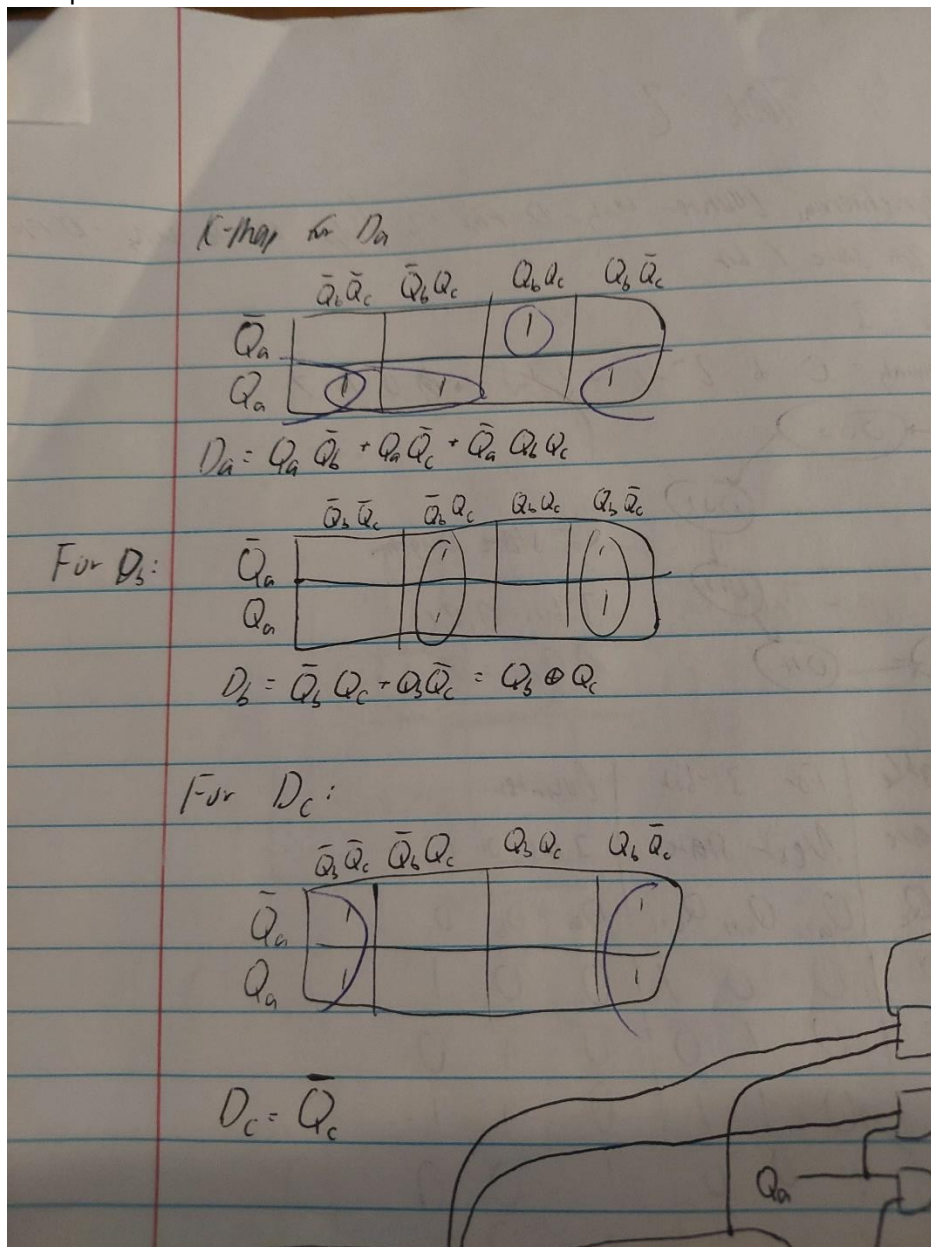 K-Map for Da
Q̄bQ̄c Q̄bQc QbQc QbQ̄c
Q̄a 1
Qa 1 1 1
Da = QaQ̄b + QaQ̄c + Q̄aQbQc
Q̄bQ̄c Q̄bQc QbQc QbQ̄c
For Db:
Q̄a 1 1
Qa 1 1
Db = Q̄bQc + QbQ̄c = Qb ⊕ Qc
For Dc:
Q̄bQ̄c Q̄bQc QbQc QbQ̄c
Q̄a 1 1
Qa 1 1
Dc = Q̄c
Qa